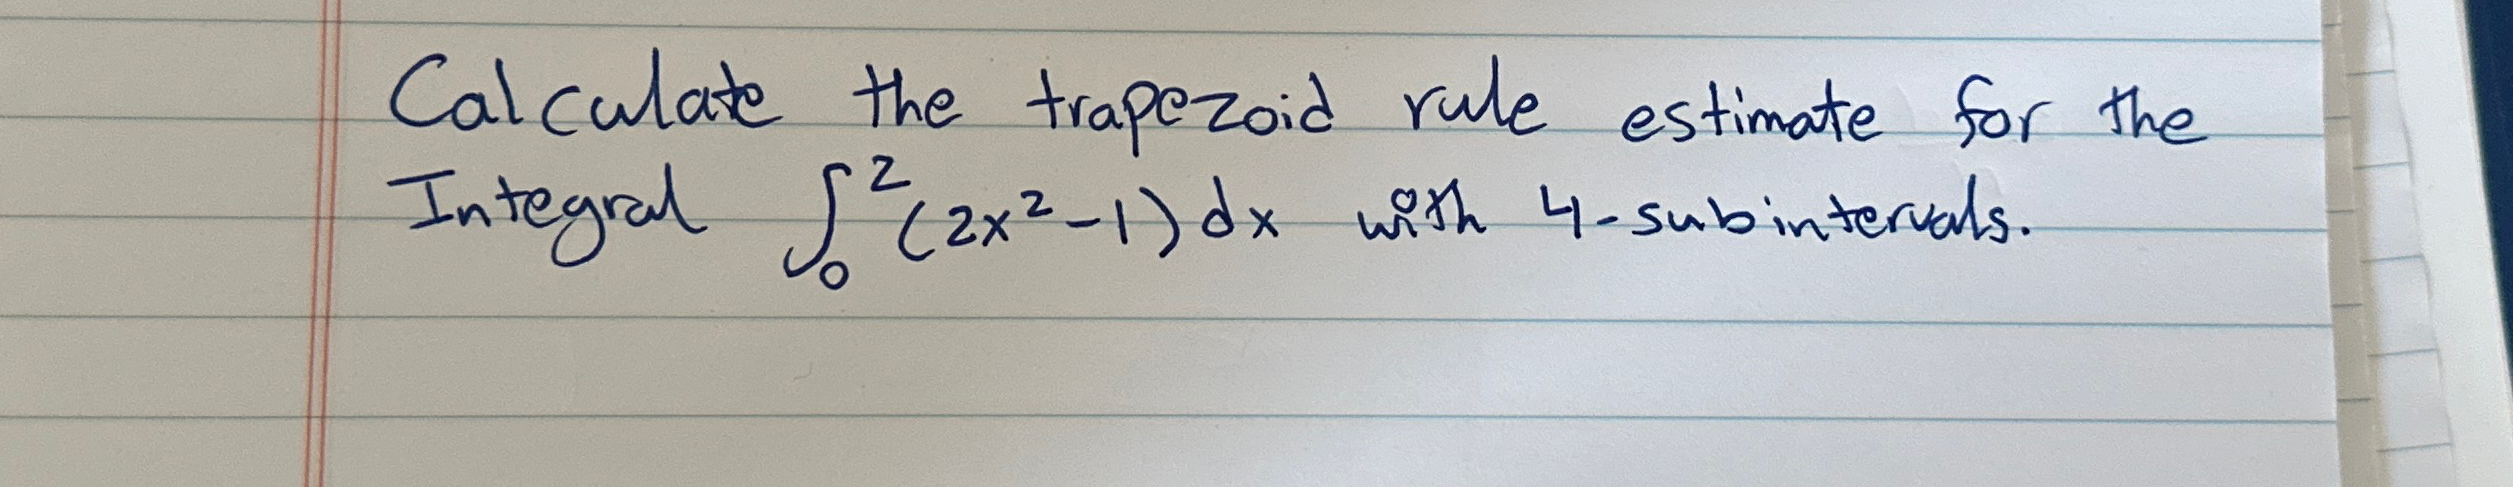 Calculate the trapezoid rule estimate for the
Integral ∫₀² (2x²-1) dx with 4-subintervals.